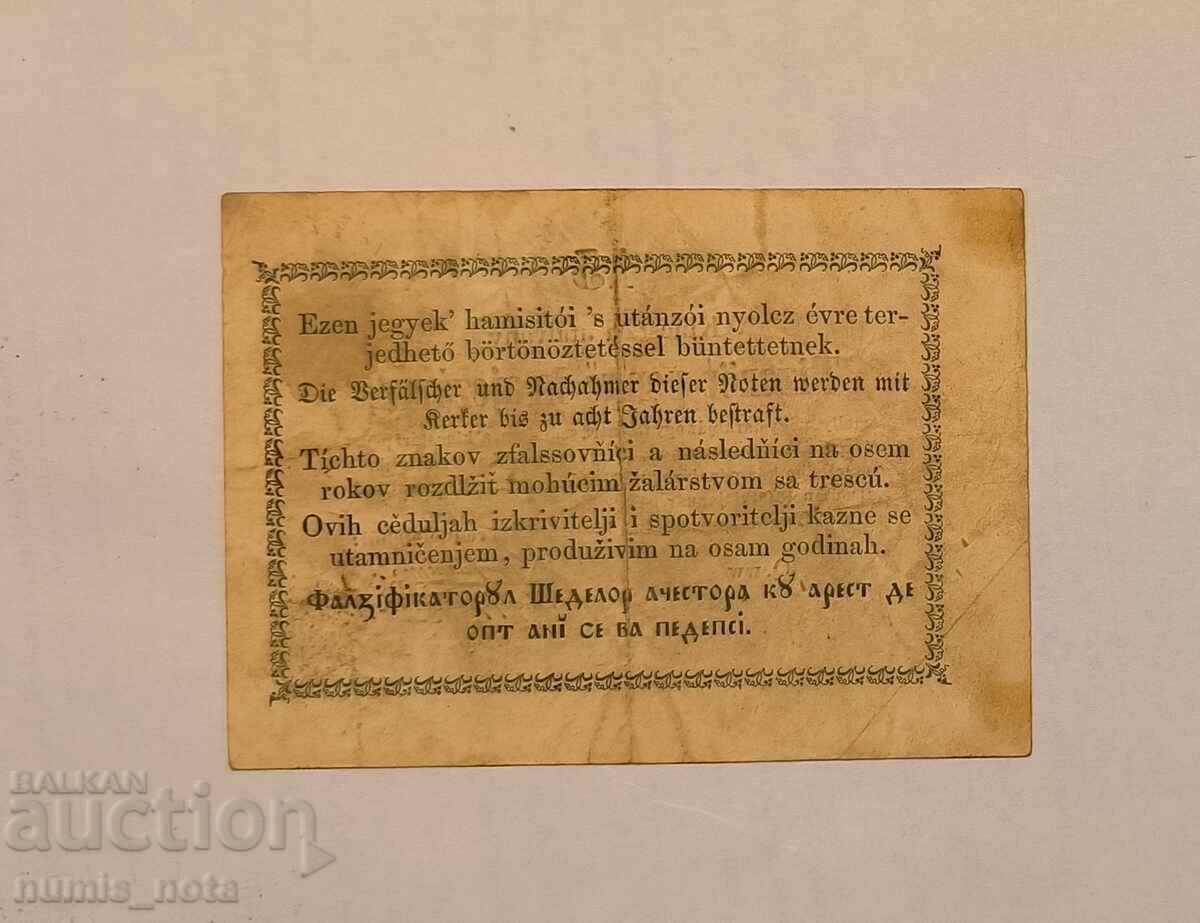 Ezen jegyek’ hamisitói ’s utánzói nyolcz évre ter-
jedhető börtönöztetéssel büntettetnek.
Die Verfälscher und Nachahmer dieser Noten werden mit
Kerker bis zu acht Jahren bestraft.
Tíchto znakov zfalssovňíci a následňíci na osem
rokov rozdlžiť mohúcim žalárstvom sa trescú.
Ovih cěduljah izkrivitelji i spotvoritelji kazne se
utamničenjem, produživim na osam godinah.
Фалꙃіфікаторꙋл Шеделор ачестора кꙋ арест де
опт anĭ се ва педепсі.
BALKAN
auction
numis_nota